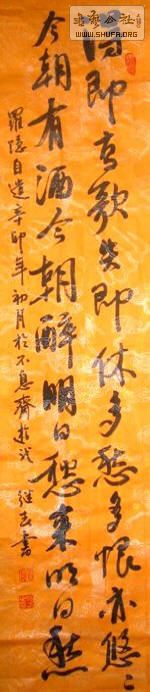 书艺公社
WWW.SHUFA.ORG
得即高歌失即休多愁多恨亦悠〻
今朝有酒今朝醉明日愁来明日愁
羅隐自遣辛卯年初月於不息齋 書